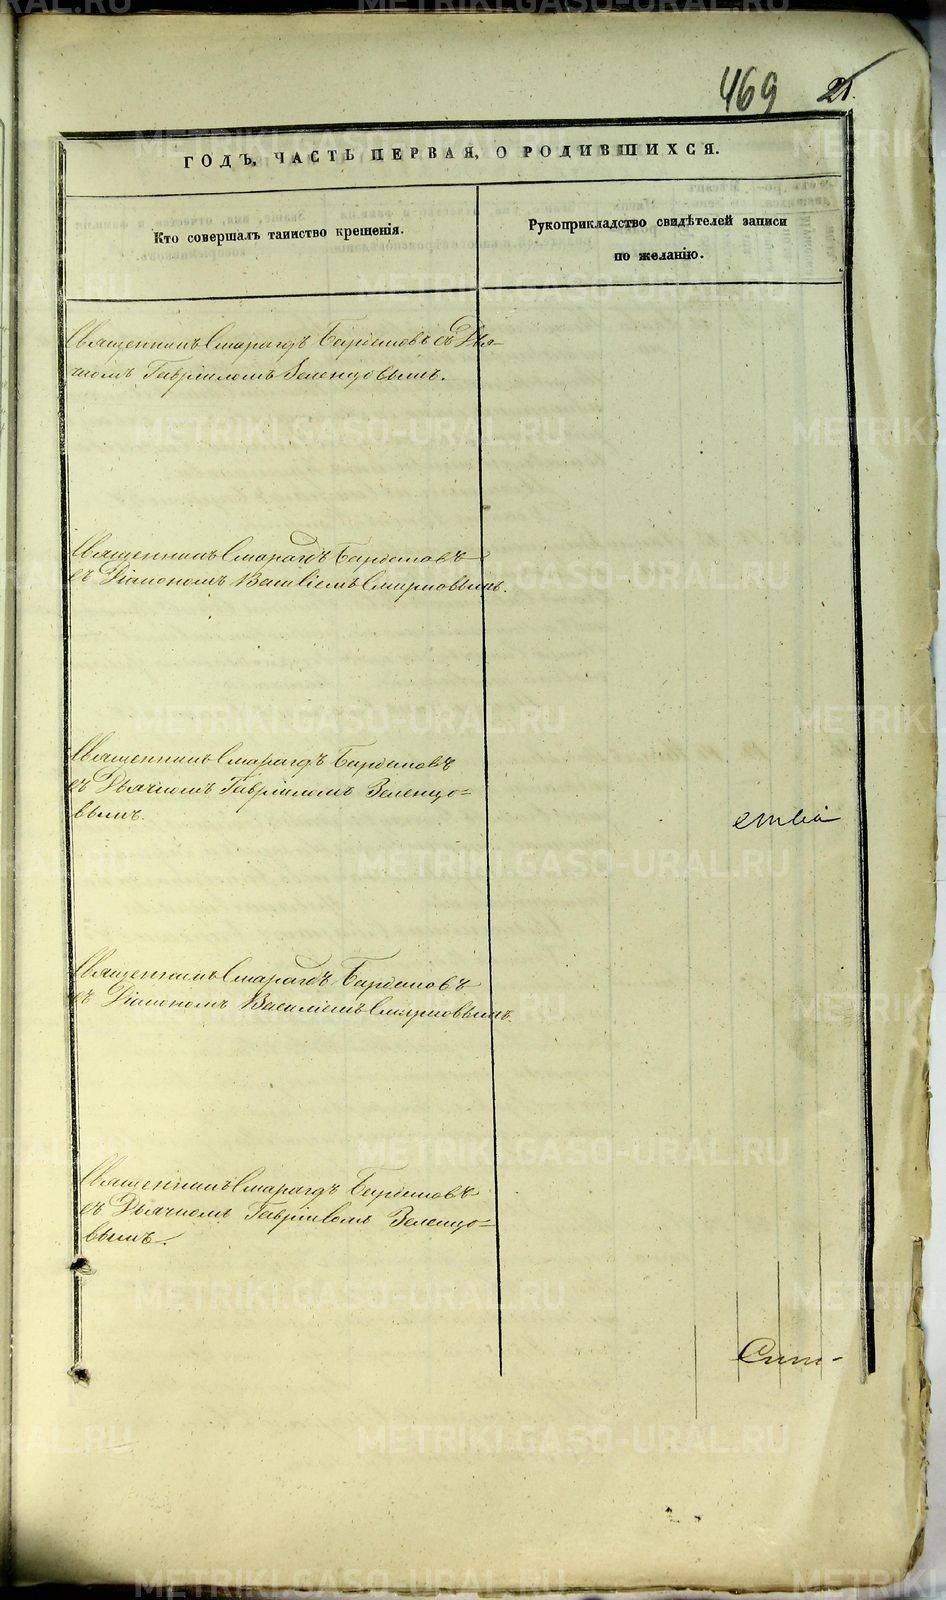 469 21.
ГОДЪ, ЧАСТЬ ПЕРВАЯ, О РОДИВШИХСЯ.
Кто совершалъ таинство крещенія.
Рукоприкладство свидѣтелей записи
по желанію.
Священникъ Смарагдъ съ Дья-
чкомъ Гавріиломъ Зеленцовымъ.
Священникъ Смарагдъ
съ Діакономъ Василіемъ Смирновымъ.
Священникъ Смарагдъ
съ Дьячкомъ Гавріиломъ Зеленцо-
вымъ.
Священникъ Смарагдъ
съ Діакономъ Василіемъ Смирновымъ.
Священникъ Смарагдъ
съ Дьячкомъ Гавріиломъ Зеленцо-
вымъ.
METRIKI.GASO-URAL.RU